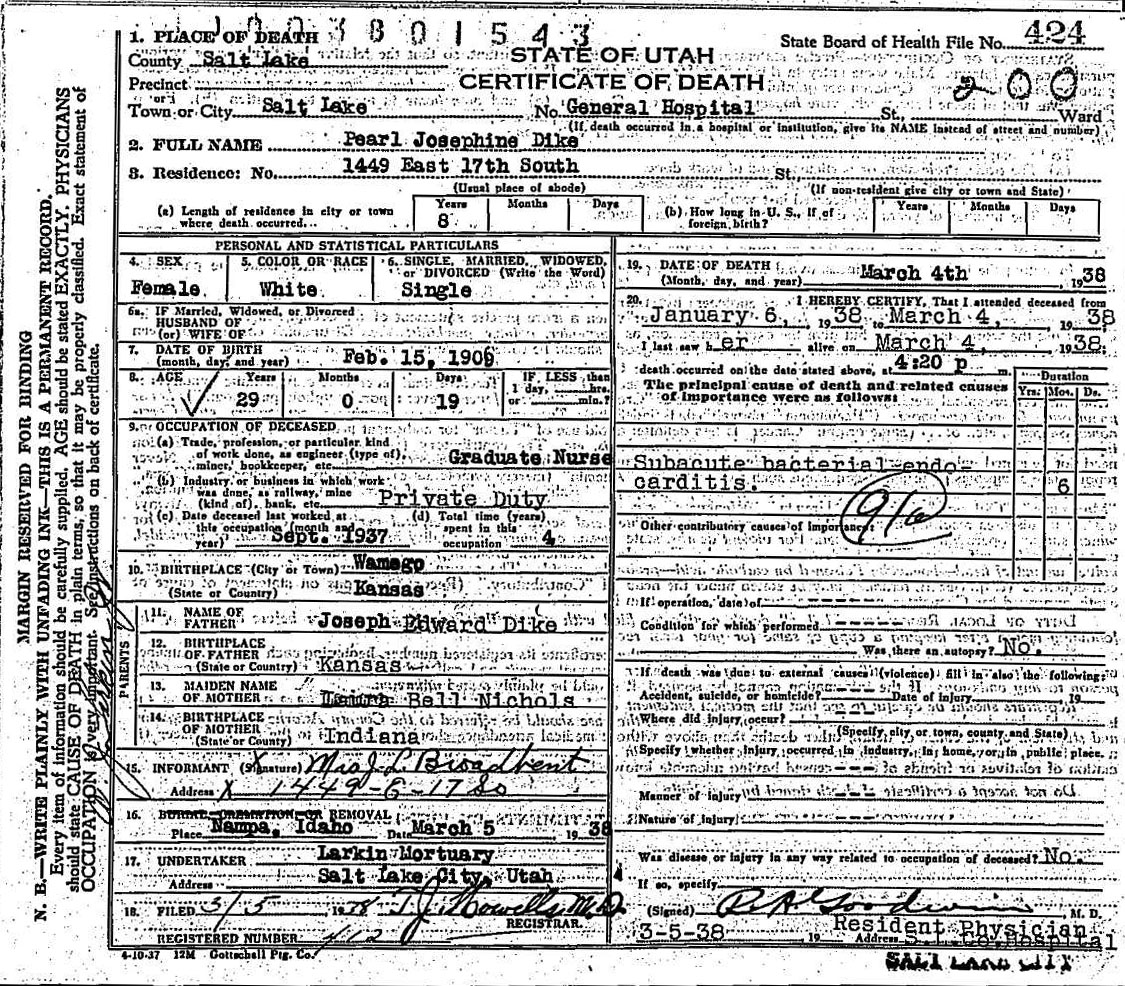 1003801543
1. PLACE OF DEATH
State Board of Health File No. 424
County Salt Lake
STATE OF UTAH
CERTIFICATE OF DEATH
200
Precinct
or
Town or City Salt Lake No. General Hospital St., Ward
(If death occurred in a hospital or institution, give its NAME instead of street and number)
2. FULL NAME Pearl Josephine Dike
3. Residence: No. 1449 East 17th South St.
(Usual place of abode) (If non-resident give city or town and State)
(a) Length of residence in city or town where death occurred... Years 8 Months Days
(b) How long in U. S., if of foreign birth? Years Months Days
PERSONAL AND STATISTICAL PARTICULARS
4. SEX Female
5. COLOR OR RACE White
6. SINGLE, MARRIED, WIDOWED, or DIVORCED (Write the Word) Single
6a. IF Married, Widowed, or Divorced
HUSBAND OF
(or) WIFE OF
7. DATE OF BIRTH
(month, day, and year) Feb. 15, 1909
8. AGE Years 29 Months 0 Days 19 IF LESS than 1 day, hrs. or min.?
9. OCCUPATION OF DECEASED
(a) Trade, profession, or particular kind
of work done, as engineer (type of),
miner, bookkeeper, etc. Graduate Nurse
(b) Industry or business in which work
was done, as railway, mine
(kind of), bank, etc. Private Duty
(c) Date deceased last worked at
this occupation (month and
year) Sept. 1937
(d) Total time (years)
spent in this
occupation 4
10. BIRTHPLACE (City or Town) Wamego
(State or Country) Kansas
PARENTS
11. NAME OF
FATHER Joseph Edward Dike
12. BIRTHPLACE
OF FATHER
(State or Country) Kansas
13. MAIDEN NAME
OF MOTHER Laura Bell Nichols
14. BIRTHPLACE
OF MOTHER
(State or Country) Indiana
15. INFORMANT (Signature) X Mrs J. L. Broadbent
Address X 1449-E-17 So
16. BURIAL, CREMATION OR REMOVAL
Place Nampa, Idaho Date March 5 1938
17. UNDERTAKER Larkin Mortuary
Address Salt Lake City, Utah
18. FILED 3/5 1938 T. J. Howells M.D.
REGISTRAR.
REGISTERED NUMBER 412
4-10-37 12M Gottschall Ptg. Co.
19. DATE OF DEATH
(Month, day, and year) March 4th 1938
20. I HEREBY CERTIFY, That I attended deceased from
January 6, 1938 to March 4, 1938
I last saw her alive on March 4, 1938.
death occurred on the date stated above, at 4:20 p m.
The principal cause of death and related causes
of importance were as follows:
Duration
Yrs. Mos. Ds.
Subacute bacterial endo-
carditis. 6
91a
Other contributory causes of importance:
If operation, date of ----
Condition for which performed -----
Was there an autopsy? No.
If death was due to external causes (violence) fill in also the following:
Accident, suicide, or homicide? Date of injury 19
Where did injury occur? ---
(Specify city, or town, county and State)
Specify whether injury occurred in industry, in home, or in public place.
---
Manner of injury ---
Nature of injury ---
Was disease or injury in any way related to occupation of deceased? No.
If so, specify
(Signed) R. A. Goodwin M. D.
Resident Physician
3-5-38 19 Address S.L.Co.Hospital
SALT LAKE CITY
MARGIN RESERVED FOR BINDING
N. B.—WRITE PLAINLY WITH UNFADING INK—THIS IS A PERMANENT RECORD.
Every item of information should be carefully supplied. AGE should be stated EXACTLY. PHYSICIANS
should state CAUSE OF DEATH in plain terms, so that it may be properly classified. Exact statement of
OCCUPATION is very important. See instructions on back of certificate.